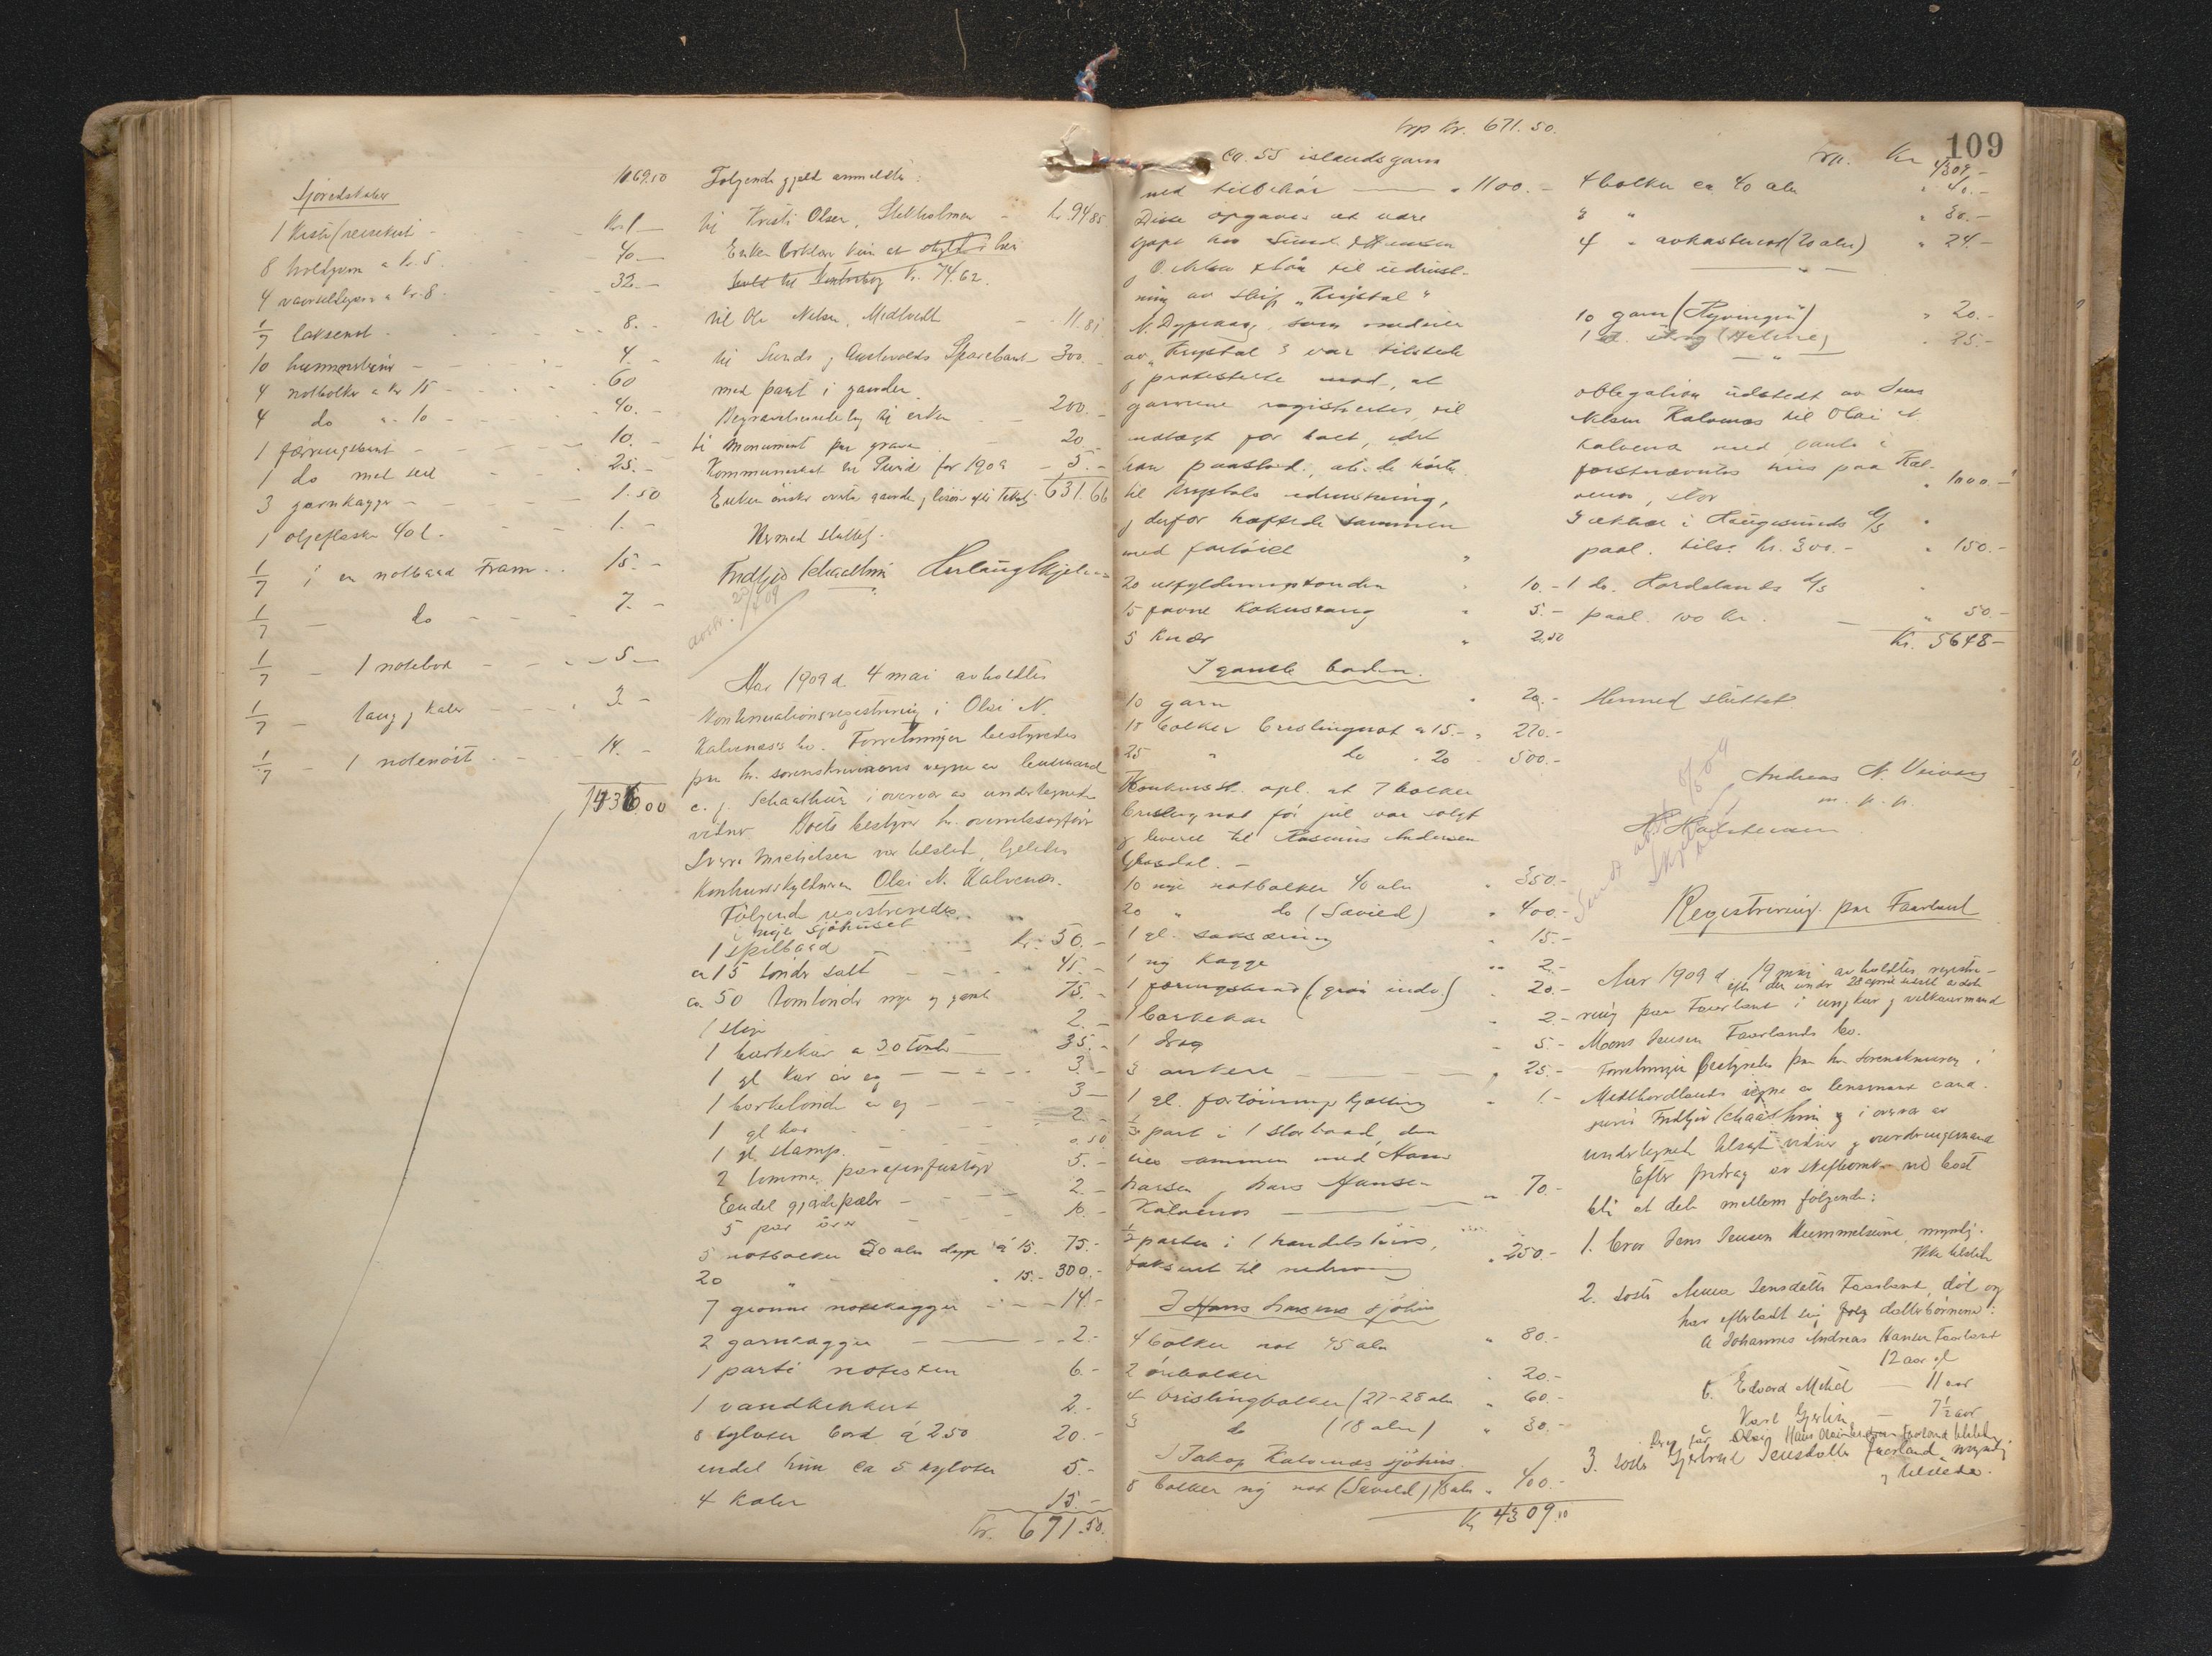 Sjøredskaber 1069.50
1 kiste (reisekist - Kr 1 —
8 holdgarn a kr. 5 40 —
4 vaarsildgarn a kr. 8. 32. —
1/7 laksenot 8. -
10 4. -
4 notbolker a kr 15 - 60
4 do " 10 - 40. -
1 færingsbaat - 10. -
1 do med seil 25. -
3 garnkagger - 1.50
1 oljeflaske 40 l. - 1. -
1/7 i en notbaad Fram .. 15. -
1/7 — do - 7. -
1/7 — 1 notebod - 5 —
1/7 — taug, kabler - 3 -
1/7 — 1 notenøst - 14. -
1436.00
Følgende gjeld anmeldtes:
til Kristi Olsen, Kr. 94 85
Enken erklær kun at skyldt i boi
Kr. 74.62.
til Ole Nilsen, Medtvedt - 11.81
til Sunds & Austevolds Sparebank 300. -
med pant i gaarden
Begravelsesutlæg til enken 200. -
til monument paa graven - 20. -
Kommuneskat til Sund for 1909 - 5. -
Enken ønsker overta gaarden & løsøre efter Takst 631.66
Hermed sluttet.
Fridtjov Schaathun Herlaug Skjelnes
avskr. 20/4 09
Aar 1909 d. 4 mai avholdtes
konkursregistrering i Olai N.
Kalvenæs's bo. Forretningen bestyredes
paa hr. sorenskriverens vegne av lensmand
c. j. Schaathun i overvær av undertegnede
vidner. Boets bestyrer hr. overretssagfører
Sverre Michelsen var tilstede, ligeledes
konkursskyldneren Olai N. Kalvenes.
Følgende registreredes
i nye sjøhuset
1 spilbaad - Kr. 50. -
ca 15 tønder salt - 45. -
ca 50 tomtønder nye og gamle 75. -
1 slip 2. -
1 barkekar a 30 tønder 35. -
1 gl kar av eg - 3. -
1 barketønde av eg - 3 —
1 gl kar - 2. -
1 gl. stamp. - 0.50
2 tomme parafinfustager 5. -
Endel gjerdepæler - 2. -
5 par årer - 10. -
5 notbolker 50 alen dype a 15. 75. -
20 " " 15. - 300. -
7 grønne notekagger - 14 -
2 garnkagger — 2. -
1 parti notesten 6. -
1 vandkikkert 2. -
8 tylvter bord á 2.50 20. -
endel hun ca 5 tylvter 5. -
4 kabler 15. -
Kr. 671.50.
109
trp kr. 671.50.
ca. 55 islandsgarn
med tilbehør — " 1100. -
Disse opgaves at være
kjøpt hos Sund & Hansen
til utrust-
ning av skip "Krystal"
som medeier
av "Krystal" var tilstede
& protesterte mod, at
garnene registreredes til
indtægt for boet, idet
han paastod, at de hørte
til Krystals utrustning,
& derfor hæftede sammen
med fartøiet "
20 utfyldningstønder " 10. -
15 favne kokustaug " 5. -
5 knær " 2.50
I gamle boden.
10 garn " 20. -
18 bolker brislingnot a 15. - " 270. -
25 " do " 20 500. -
Konkurssk. opl. at 7 bolker
brislingnot før jul var solgt
& leveret til Rasmus Andersen
Glæsdal. -
10 nye notbolker 40 alen " 350. -
20 " do (Søvied) " 400. -
1 gl. seksæring " 15. -
1 ny kagge " 2. -
1 færingsbaad (graa indv.) " 20. -
1 barkekar " 2. -
1 drag " 5. -
3 ankere — " 25. -
1 gl. fortøiningskjætting " 1. -
1/3 part i 1 storbaad, den
eies sammen med Hans
Larsen, Lars Hansen
Kalvenes — " 70. -
1/2 parten i 1 handelshus,
taksert til nedrivning " 250. -
I Hans Larsens sjøhus
4 bolker not 45 alen " 80. -
2 ørebolker " 20. -
4 brislingbolker (27-28 alen " 60. -
3 do (18 alen) " 30. -
I Jakop Kalvenæs sjøhus.
8 bolker ny not (Søvild) 18 alen " 400. -
Kr 4309.50
trp. Kr 4309. -
4 bolker ca 40 alen " 40. -
3 " " 30. -
4 " avkastunot (20 alen) " 24. -
— " —
10 garn (Ryvingen) " 20. -
1 st. drag (Heline) " 25. -
— " —
obligation utstedt av Jens
Nilsen Kalvenes til Olai N.
Kalvenes med pant i
førstnævntes hus paa Kal-
venes, stor " 1000. -
3 aktier i Haugesunds D/S "
paal. tils. kr. 300. - " 150. -
1 do. Hordalands D/S "
paal. 100 kr. — " 50. -
Kr. 5648 -
Hermed sluttet
Andreas N. Veivaag
m. p. p.
H. Halstensen
Registrering paa Faarland
Aar 1909 d. 19 mai avholdtes registre-
efter den under 28 april næstl. avdøde
ring paa Faarland i ungkar & velkaarmand
Mons Jensen Faarlands bo.
Forretningen bestyredes paa hr. sorenskriveren i
Midthordlands vegne av lensmand cand.
juris Fridtjov Schaathun & i overvær av
undertegnede tilsagte vidner & vurderingsmænd
Efter fradrag av skifteomk. vil boet
bli at dele mellem følgende:
1. bror Jens Jensen Hummelsund, myndig.
Ikke tilstede
2. søster Anna Jensdatter Faarland, død og
har efterladt sig følg datterbørnene:
a Johannes Andreas Hansen Faarland
12 aar gl
b. Edvard Mikal — 11 aar
c Karl Gjertin — 7 1/2 aar
far Hans Faarland tilstede
3. søster Gjertrud Jensdatter Faarland myndig
& tilstede.